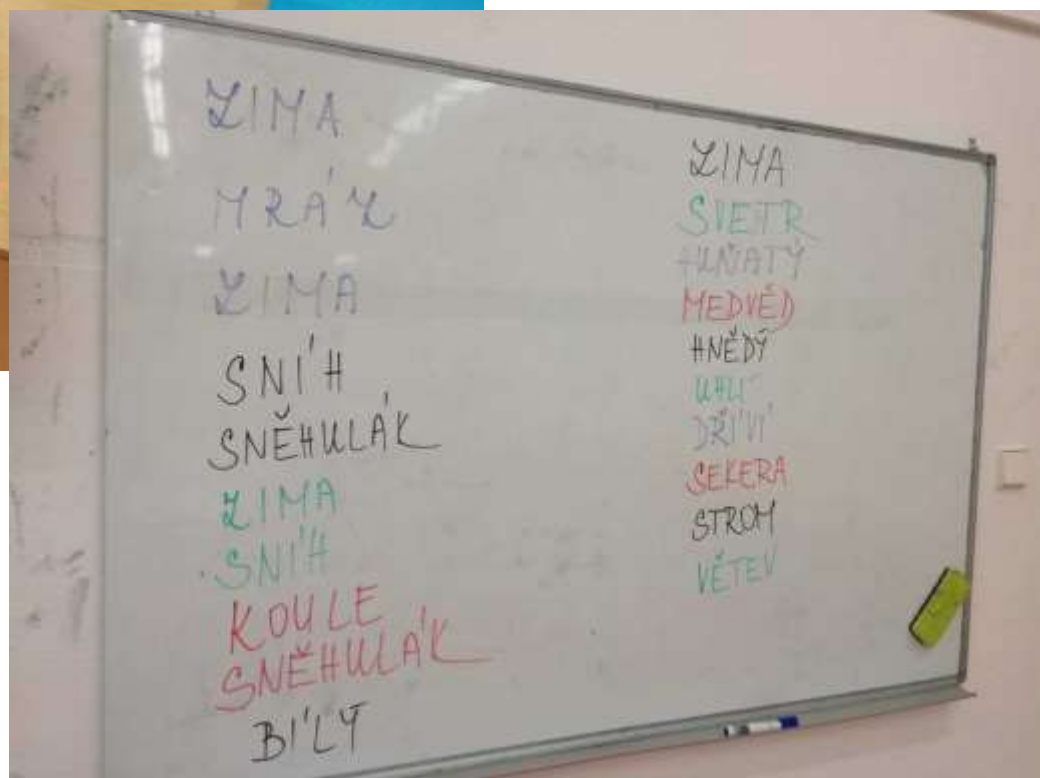 ZIMA
MRÁZ
ZIMA
SNÍH
SNĚHULÁK
ZIMA
SNÍH
KOULE
SNĚHULÁK
BÍLÝ
ZIMA
SVETR
HUŇATÝ
MEDVĚD
HNĚDÝ
UHLÍ
DŘÍVÍ
SEKERA
STROM
VĚTEV